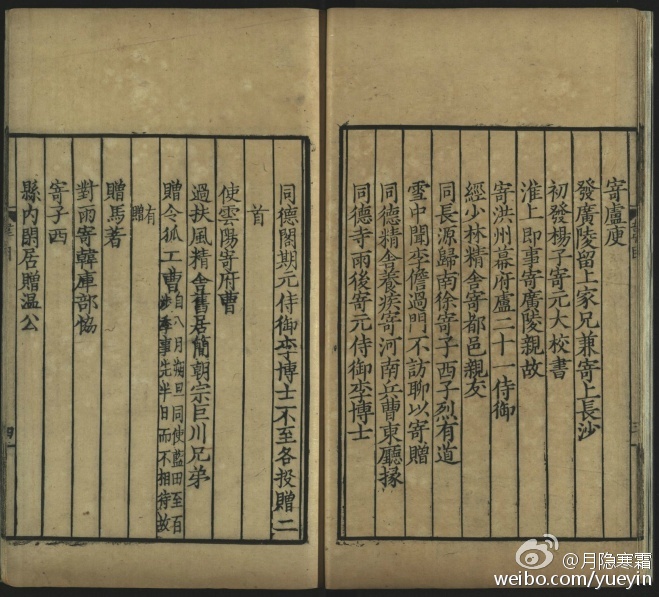 寄盧庾
發廣陵留上家兄兼寄上長沙
初發楊子寄元大校書
淮上即事寄廣陵親故
寄洪州幕府盧二十一侍御
經少林精舍寄都邑親友
同長源歸南徐寄子西子烈有道
雪中聞李儋過門不訪聊以寄贈
同德精舍養疾寄河南兵曹東廳掾
同德寺雨後寄元侍御李博士
同德閣期元侍御李博士不至各投贈二
首
使雲陽寄府曹
過扶風精舍舊居簡朝宗巨川兄弟
贈令狐工曹
自八月朔旦同使藍田
涉季事先半日而不相待故
有
贈
贈馮著
對雨寄韓庫部協
寄子西
縣內閑居贈温公
四
@月隐寒霜
weibo.com/yueyin